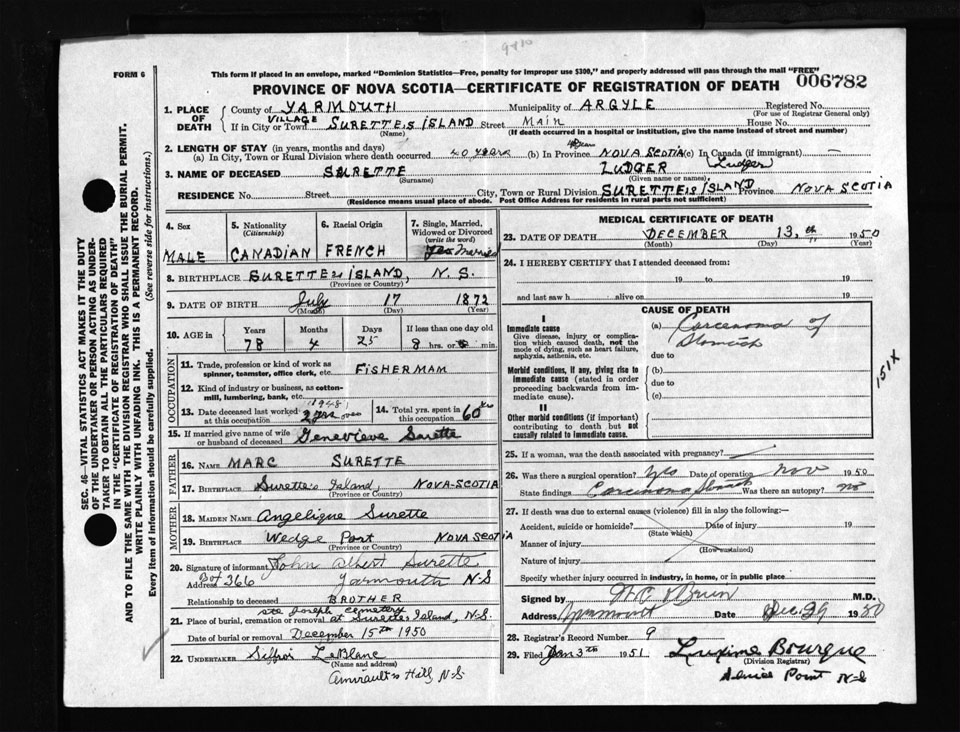 9810
FORM 6
This form if placed in an envelope, marked "Dominion Statistics—Free, penalty for improper use $300," and properly addressed will pass through the mail "FREE"
006782
PROVINCE OF NOVA SCOTIA—CERTIFICATE OF REGISTRATION OF DEATH
1. PLACE OF DEATH County of YARMOUTH Municipality of ARGYLE Registered No.
(For use of Registrar General only)
VILLAGE
If in City or Town SURETTE,S ISLAND Street MAIN House No.
(Name) (If death occurred in a hospital or institution, give the name instead of street and number)
2. LENGTH OF STAY (in years, months and days)
(a) In City, Town or Rural Division where death occurred 40 years (b) In Province NOVA SCOTIA (c) In Canada (if immigrant) —
3. NAME OF DECEASED SURETTE LUDGER (Ludger)
(Surname) (Given name or names)
RESIDENCE No. Street City, Town or Rural Division SURETTE,S ISLAND Province NOVA SCOTIA
(Residence means usual place of abode. Post Office Address for residents in rural parts not sufficient)
4. Sex 5. Nationality (Citizenship) 6. Racial Origin 7. Single, Married, Widowed or Divorced (write the word)
MALE CANADIAN FRENCH Married
8. BIRTHPLACE SURETTE,S ISLAND, N.S.
(Province or Country)
9. DATE OF BIRTH July 17 1872
(Month) (Day) (Year)
10. AGE in Years Months Days If less than one day old
78 4 25 8 hrs. or min.
OCCUPATION
11. Trade, profession or kind of work as spinner, teamster, office clerk, etc. FISHERMAM
12. Kind of industry or business, as cotton-mill, lumbering, bank, etc.
13. Date deceased last worked at this occupation (1948) 2 yrs 14. Total yrs. spent in this occupation 60 yrs
15. If married give name of wife or husband of deceased Genevieve Surette
FATHER
16. NAME MARC SURETTE
17. BIRTHPLACE Surette's Island, NOVA-SCOTIA
(Province or Country)
MOTHER
18. MAIDEN NAME Angelique Surette
19. BIRTHPLACE Wedge Port NOVA SCOTIA
(Province or Country)
20. Signature of informant John Albert Surette
Address Box 366 Yarmouth N-S
Relationship to deceased BROTHER
ste Joseph cemetery
21. Place of burial, cremation or removal at Surettes Island, N-S.
Date of burial or removal December 15th 1950
22. UNDERTAKER LeBlanc
(Name and address)
Amirault,s Hill N-S
MEDICAL CERTIFICATE OF DEATH
23. DATE OF DEATH DECEMBER 13,th 1950
(Month) (Day) (Year)
24. I HEREBY CERTIFY that I attended deceased from:
19 to 19
and last saw h alive on 19
CAUSE OF DEATH
I
Immediate cause
Give disease, injury or complication which caused death, not the mode of dying, such as heart failure, asphyxia, asthenia, etc.
(a) Carcenoma of Stomach
due to
Morbid conditions, if any, giving rise to immediate cause (stated in order proceeding backwards from immediate cause).
(b)
due to
(c)
II
Other morbid conditions (if important) contributing to death but not causally related to immediate cause.
151X
25. If a woman, was the death associated with pregnancy?
26. Was there a surgical operation? Yes Date of operation Nov 1950
State findings Carcenoma Stomach Was there an autopsy? no
27. If death was due to external causes (violence) fill in also the following:—
Accident, suicide or homicide? Date of injury 19
(State which)
Manner of injury
(How sustained)
Nature of injury
Specify whether injury occurred in industry, in home, or in public place
Signed by M.D.
Address Yarmouth Date Dec. 29 1950
28. Registrar's Record Number 9
29. Filed Jan 3th 1951 Bourque
(Division Registrar)
Point N-S
SEC. 46—VITAL STATISTICS ACT MAKES IT THE DUTY
OF THE UNDERTAKER OR PERSON ACTING AS UNDER-
TAKER TO OBTAIN ALL THE PARTICULARS REQUIRED
IN THE "CERTIFICATE OF REGISTRATION OF DEATH"
AND TO FILE THE SAME WITH THE DIVISION REGISTRAR WHO SHALL ISSUE THE BURIAL PERMIT.
WRITE PLAINLY WITH UNFADING INK. THIS IS A PERMANENT RECORD.
Every item of information should be carefully supplied. (See reverse side for instructions.)